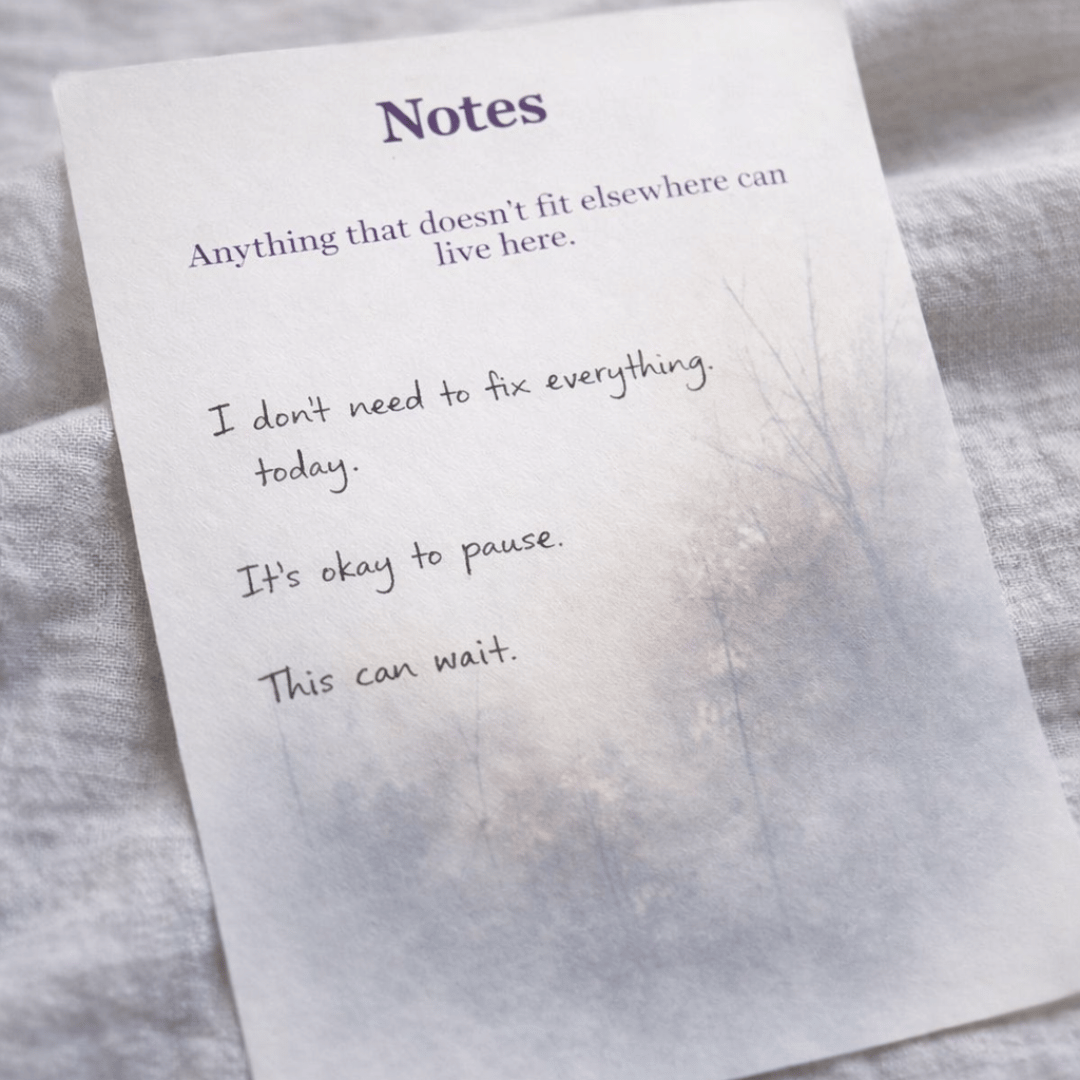 Notes
Anything that doesn't fit elsewhere can
live here.
I don't need to fix everything.
today.
It's okay to pause.
This can wait.